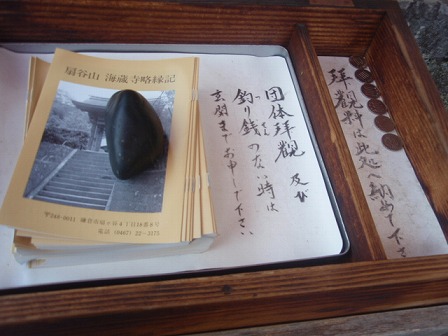 扇谷山 海蔵寺略縁記
〒248-0011 鎌倉市扇ヶ谷4丁目18番8号
電話 (0467) 22-3175
団体拝観 及び
釣り銭のない時は
玄関までお申し出下さい
拝観料は此処へ納めて下さい